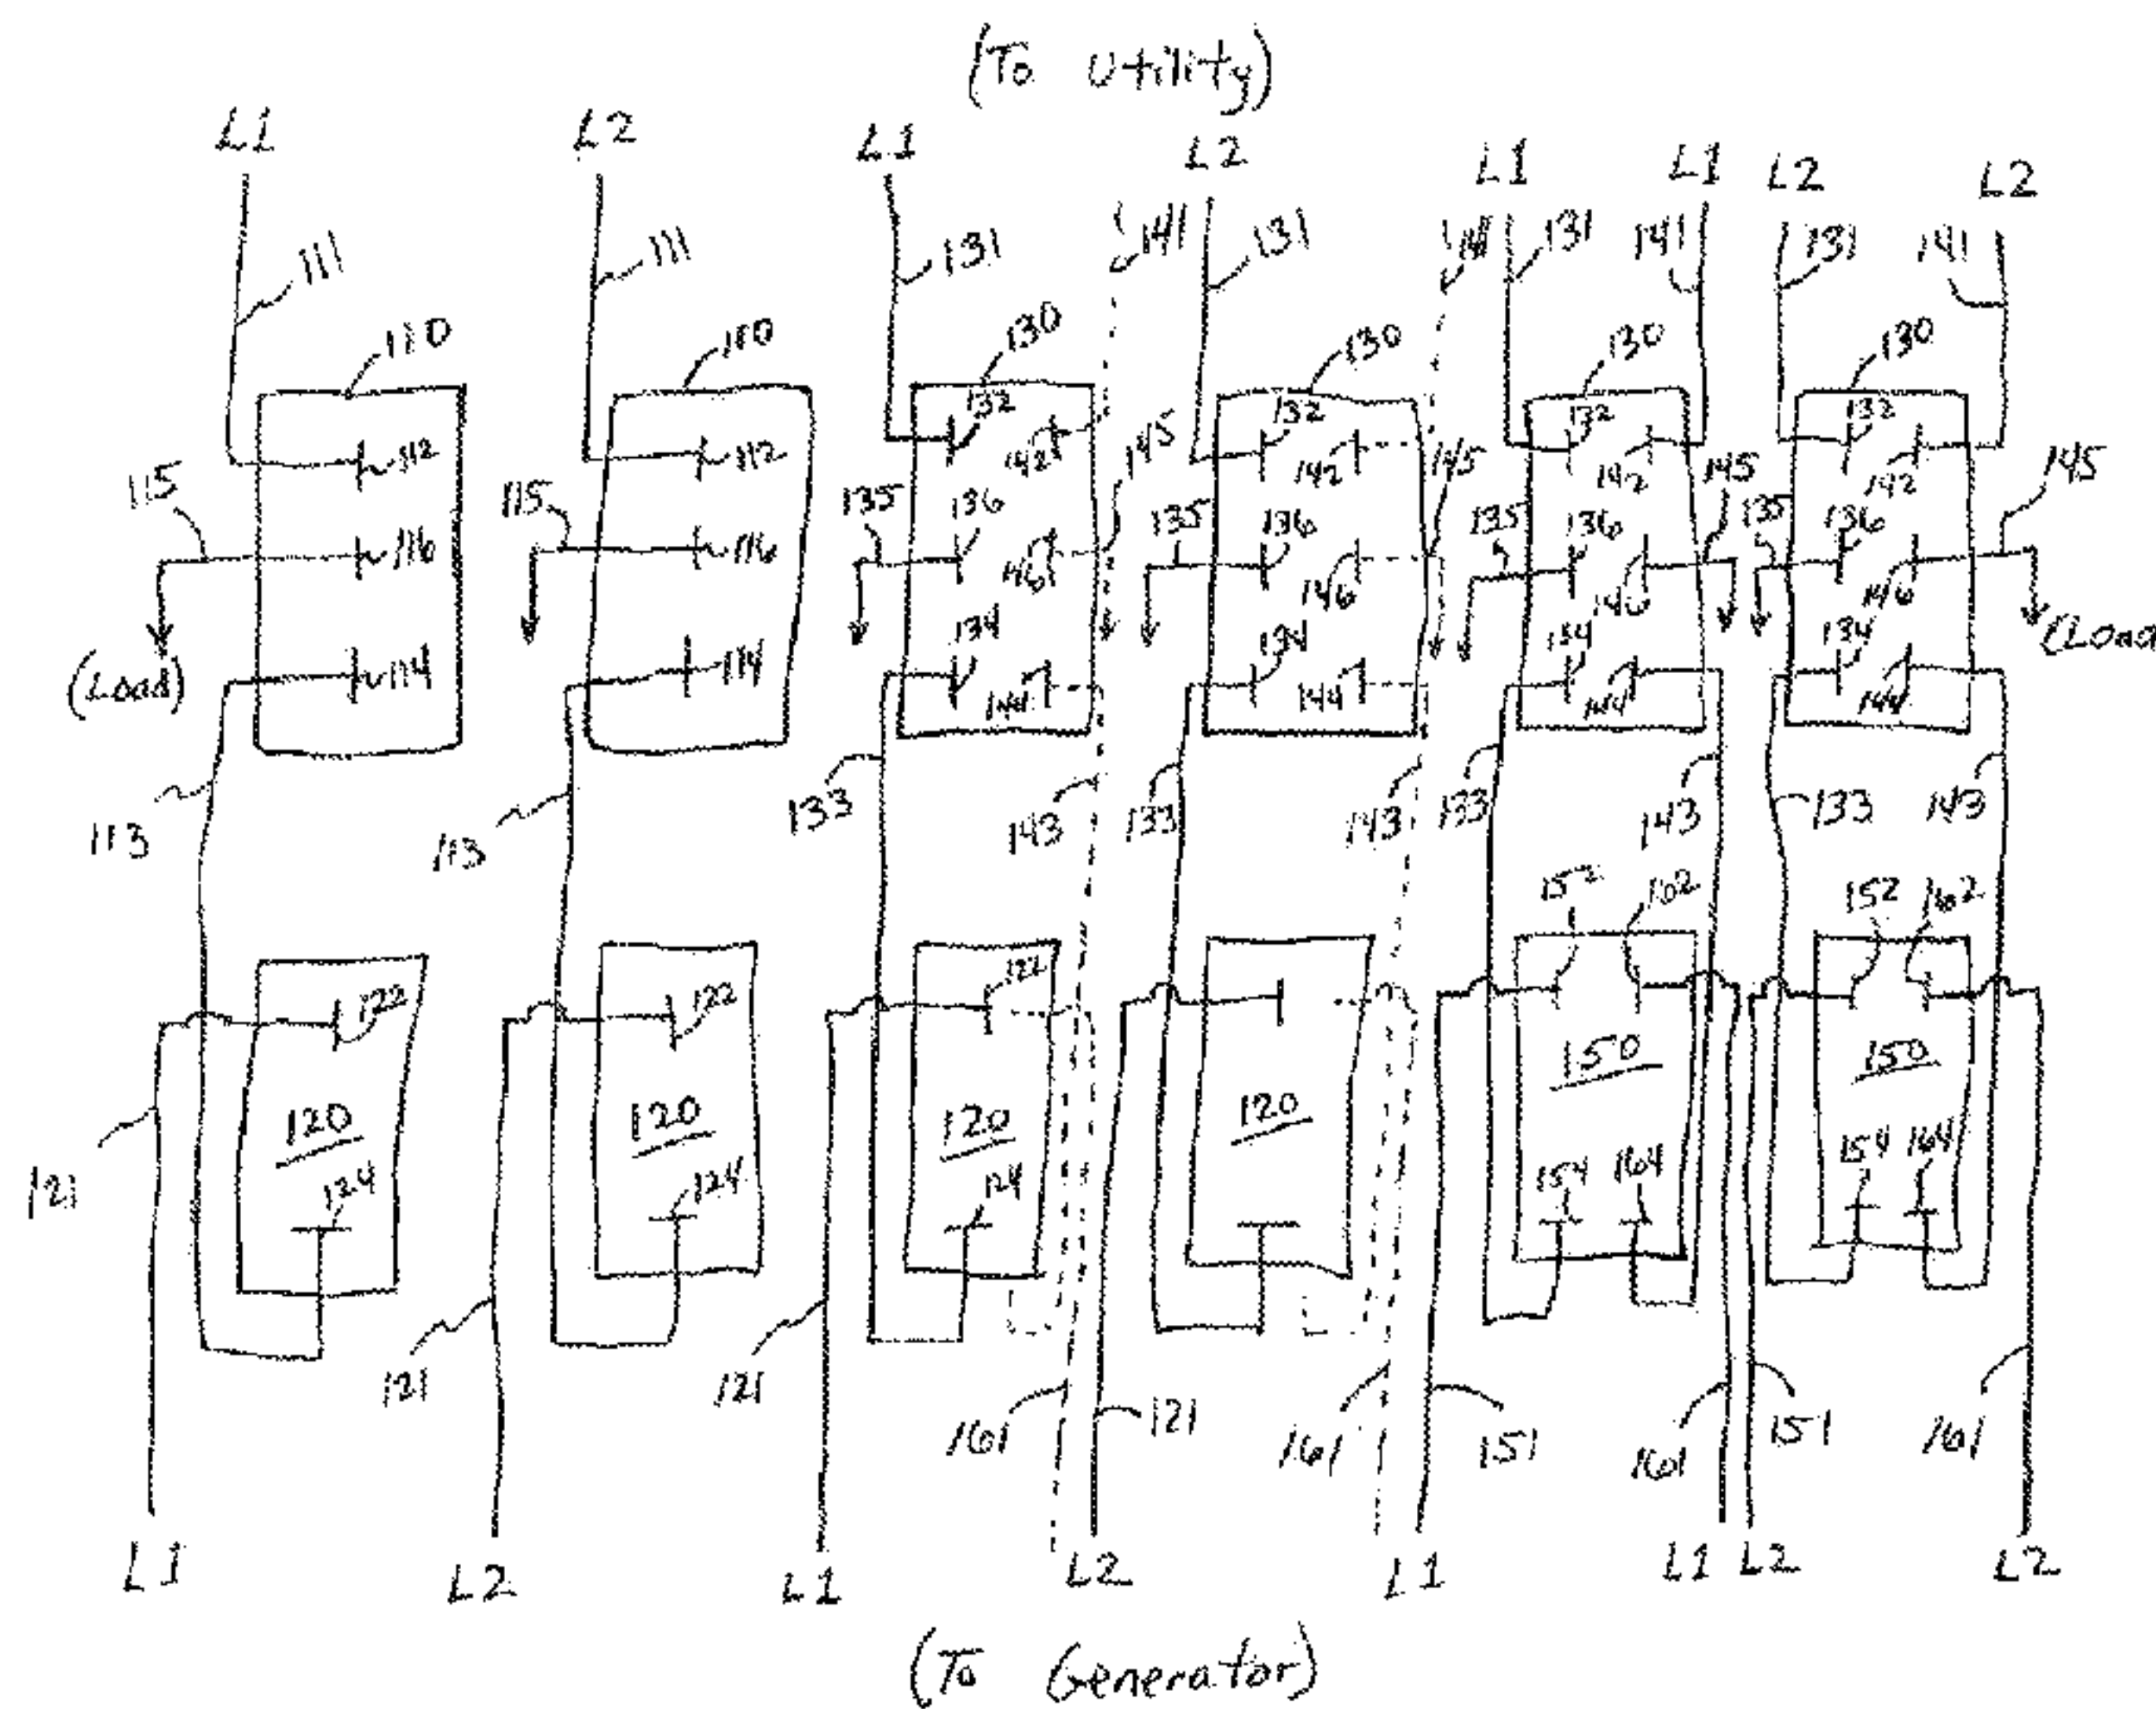 (To Utility)
L1 L2 L1 L2 L1 L1 L2 L2
111 111 131 141 131 141 131 141 131 141
110 110 130 130 130 130
112 112 132 142 132 142 132 142 132 142
115 115 135 145 135 145 135 145 135 145
116 116 136 146 136 146 136 146 136 146
114 114 134 144 134 144 134 144 134 144
(Load) (Load
113 113 133 143 133 143 133 143 133 143
152 162 152 162
122 122 122
120 120 120 120 150 150
124 124 124 154 164 154 164
121 121 121 161 121 161 151 161 151 161
L1 L2 L1 L2 L1 L1 L2 L2
(To Generator)